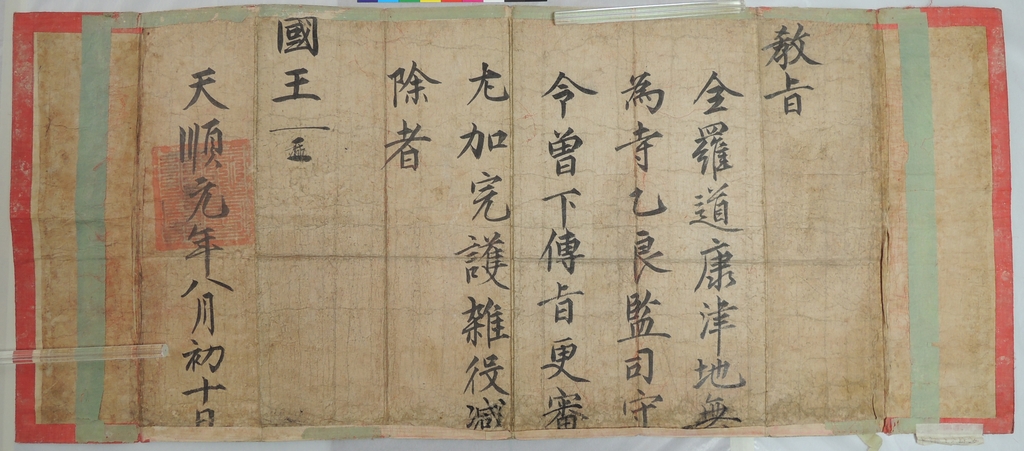 教旨
全羅道康津地無
為寺乙良監司守
令曽下傳旨更審
尤加完護雑役减
除者
國王
天順元年八月初十日